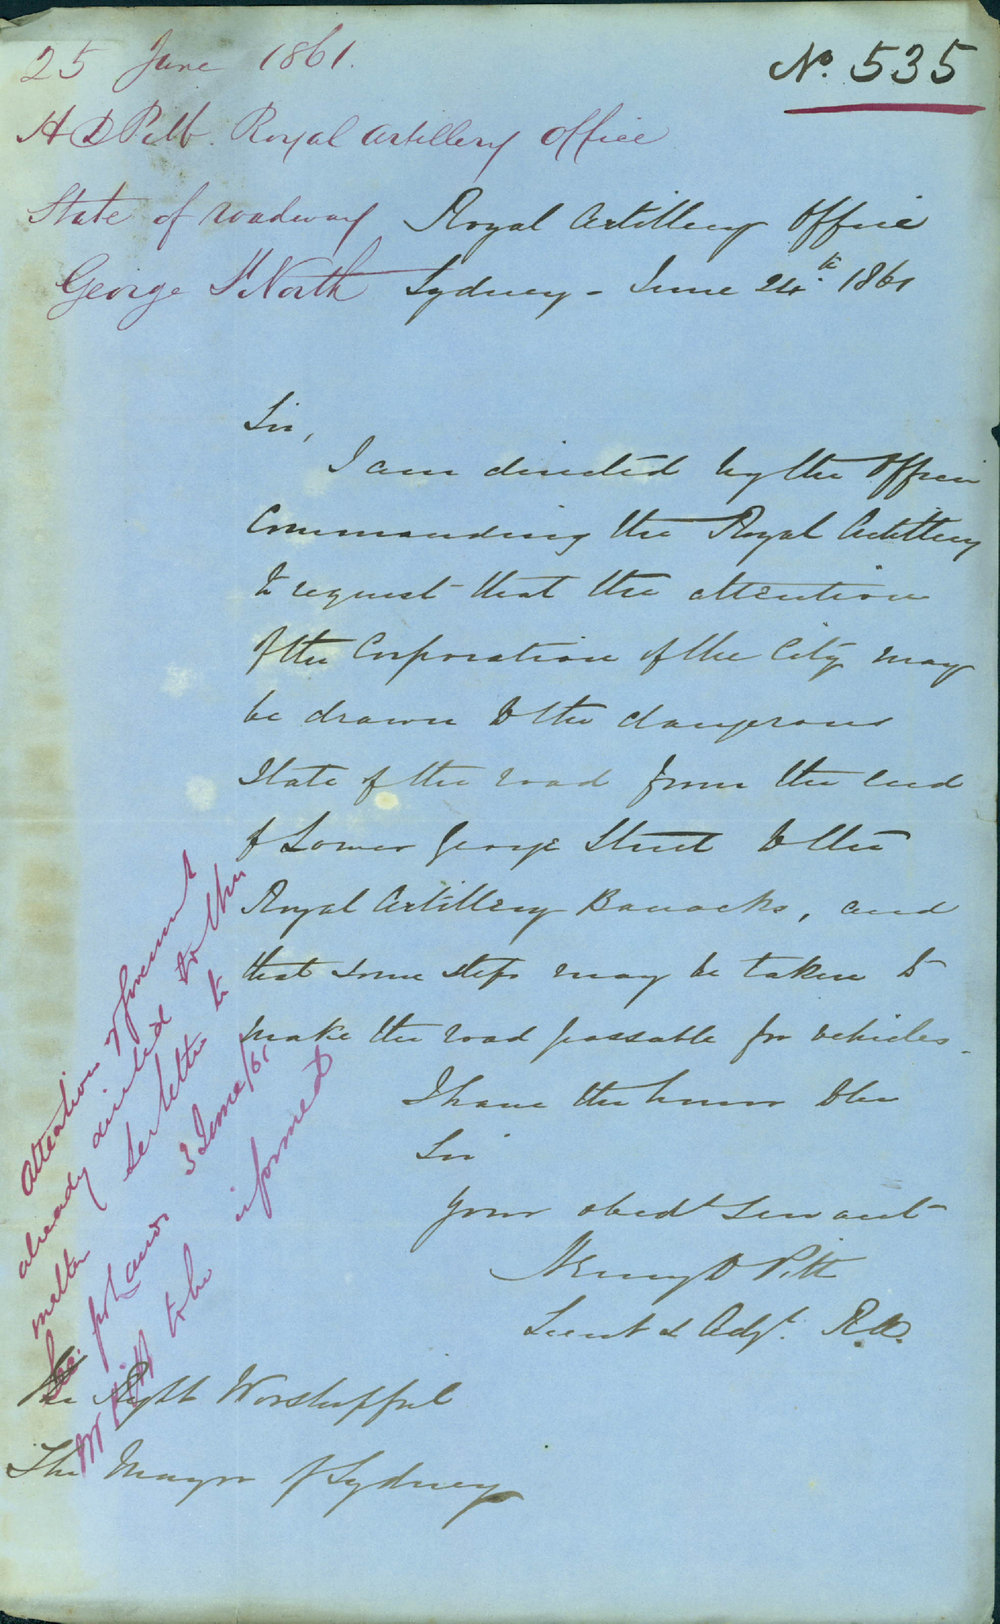 25 June 1861.
No. 535
H D Pitt. Royal Artillery Office
State of roadway
George St North
Royal Artillery Office
Sydney - June 24th 1861
Sir,
I am directed by the Officer
Commanding the Royal Artillery
to request that the attention
of the Corporation of the City may
be drawn to the dangerous
State of the road from the end
of Lower George Street to the
Royal Artillery Barracks, and
that some steps may be taken to
make the road passable for vehicles.
I have the honor to be
Sir
Your obedt Servant
Henry D Pitt
Lieut & Adjt. R.A.
The Right Worshipful
The Mayor of Sydney
Attention of Government
already directed to this
matter See letter to
3 June/61
Mr Pitt to be informed